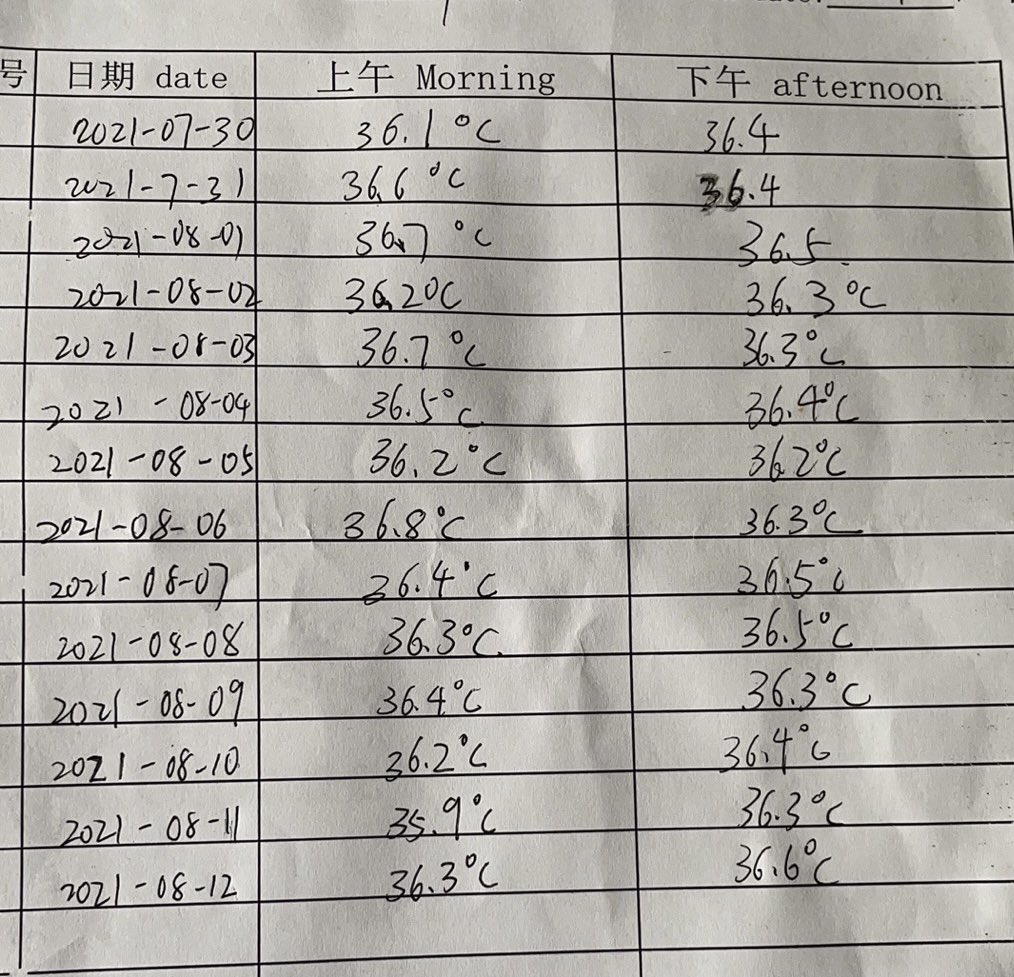 号 日期 date 上午 Morning 下午 afternoon
2021-07-30 36.1°C 36.4
2021-7-31 36.6°C 36.4
2021-08-01 36.7°C 36.5
2021-08-02 36.2°C 36.3°C
2021-08-03 36.7°C 36.3°C
2021-08-04 36.5°C 36.4°C
2021-08-05 36.2°C 36.2°C
2021-08-06 36.8°C 36.3°C
2021-08-07 36.4°C 36.5°C
2021-08-08 36.3°C 36.5°C
2021-08-09 36.4°C 36.3°C
2021-08-10 36.2°C 36.4°C
2021-08-11 35.9°C 36.3°C
2021-08-12 36.3°C 36.6°C